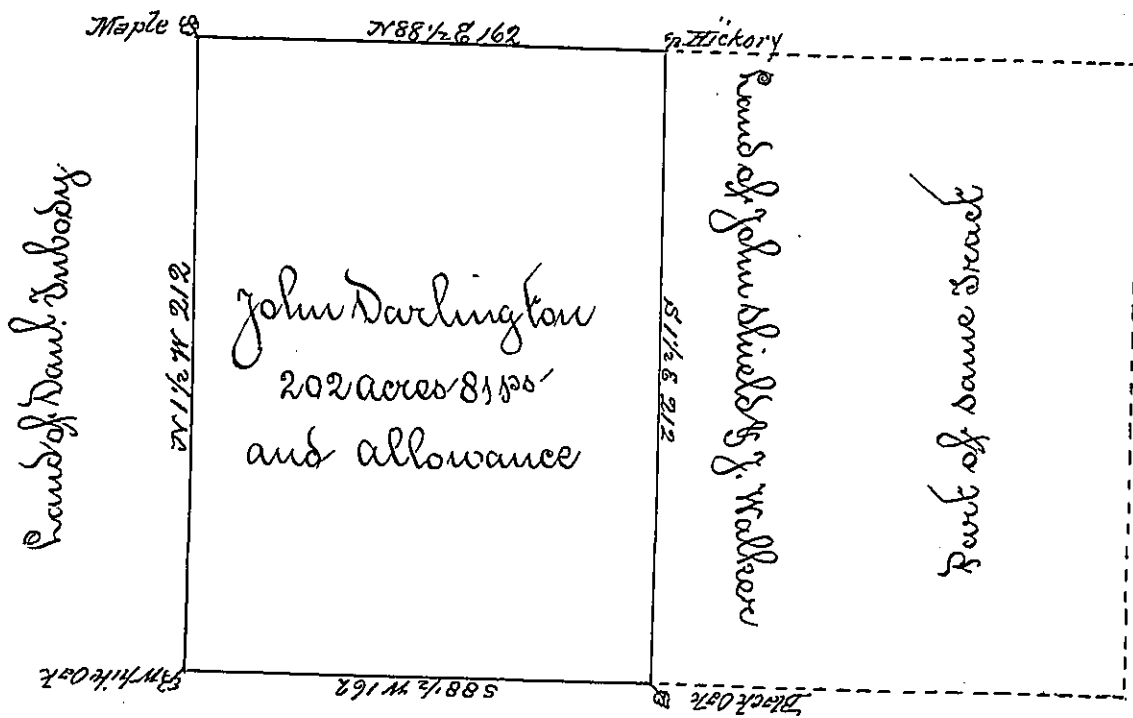 Maple
N 88 1/2 E 162
Hickory
Land of Danl. Inbody
N 1 1/2 W 212
John Darlington
202 acres 81 ps
and allowance
S 1 1/2 E 212
Land of John Shields & J. Walker
Part of same Tract
White Oak
S 88 1/2 W 162
Black Oak